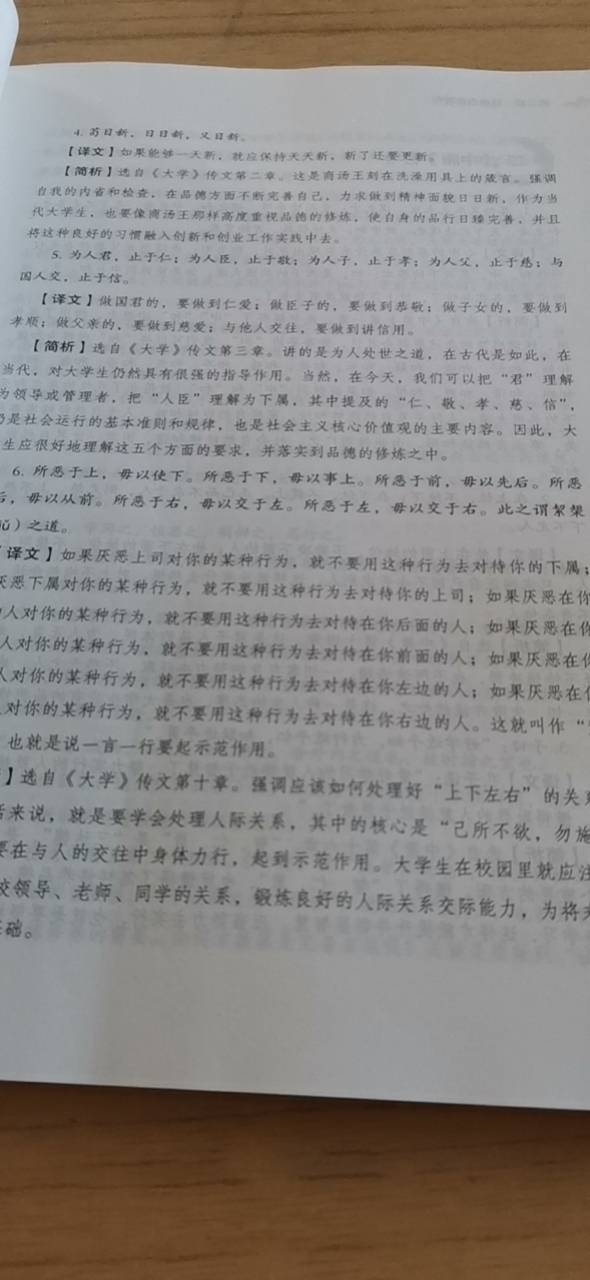 4. 苟日新，日日新，又日新。
【译文】如果能够一天新，就应保持天天新，新了还要更新。
【简析】选自《大学》传文第二章。这是商汤王刻在洗澡用具上的箴言。强调
自我的内省和检查，在品德方面不断完善自己，力求做到精神面貌日日新，作为当
代大学生，也要像商汤王那样高度重视品德的修炼，使自身的品行日臻完善，并且
将这种良好的习惯融入创新和创业工作实践中去。
5. 为人君，止于仁；为人臣，止于敬；为人子，止于孝；为人父，止于慈；与
国人交，止于信。
【译文】做国君的，要做到仁爱；做臣子的，要做到恭敬；做子女的，要做到
孝顺；做父亲的，要做到慈爱；与他人交往，要做到讲信用。
【简析】选自《大学》传文第三章。讲的是为人处世之道，在古代是如此，在
当代，对大学生仍然具有很强的指导作用。当然，在今天，我们可以把“君”理解
为领导或管理者，把“人臣”理解为下属，其中提及的“仁、敬、孝、慈、信”，
仍是社会运行的基本准则和规律，也是社会主义核心价值观的主要内容。因此，大
生应很好地理解这五个方面的要求，并落实到品德的修炼之中。
6. 所恶于上，毋以使下。所恶于下，毋以事上。所恶于前，毋以先后。所恶
后，毋以从前。所恶于右，毋以交于左。所恶于左，毋以交于右。此之谓絜榘
ǔ）之道。
译文】如果厌恶上司对你的某种行为，就不要用这种行为去对待你的下属；
厌恶下属对你的某种行为，就不要用这种行为去对待你的上司；如果厌恶在你
人对你的某种行为，就不要用这种行为去对待在你后面的人；如果厌恶在你
人对你的某种行为，就不要用这种行为去对待在你前面的人；如果厌恶在你
人对你的某种行为，就不要用这种行为去对待在你左边的人；如果厌恶在你
对你的某种行为，就不要用这种行为去对待在你右边的人。这就叫作“
也就是说一言一行要起示范作用。
】选自《大学》传文第十章。强调应该如何处理好“上下左右”的关系
来说，就是要学会处理人际关系，其中的核心是“己所不欲，勿施
要在与人的交往中身体力行，起到示范作用。大学生在校园里就应注
校领导、老师、同学的关系，锻炼良好的人际关系交际能力，为将来
基础。